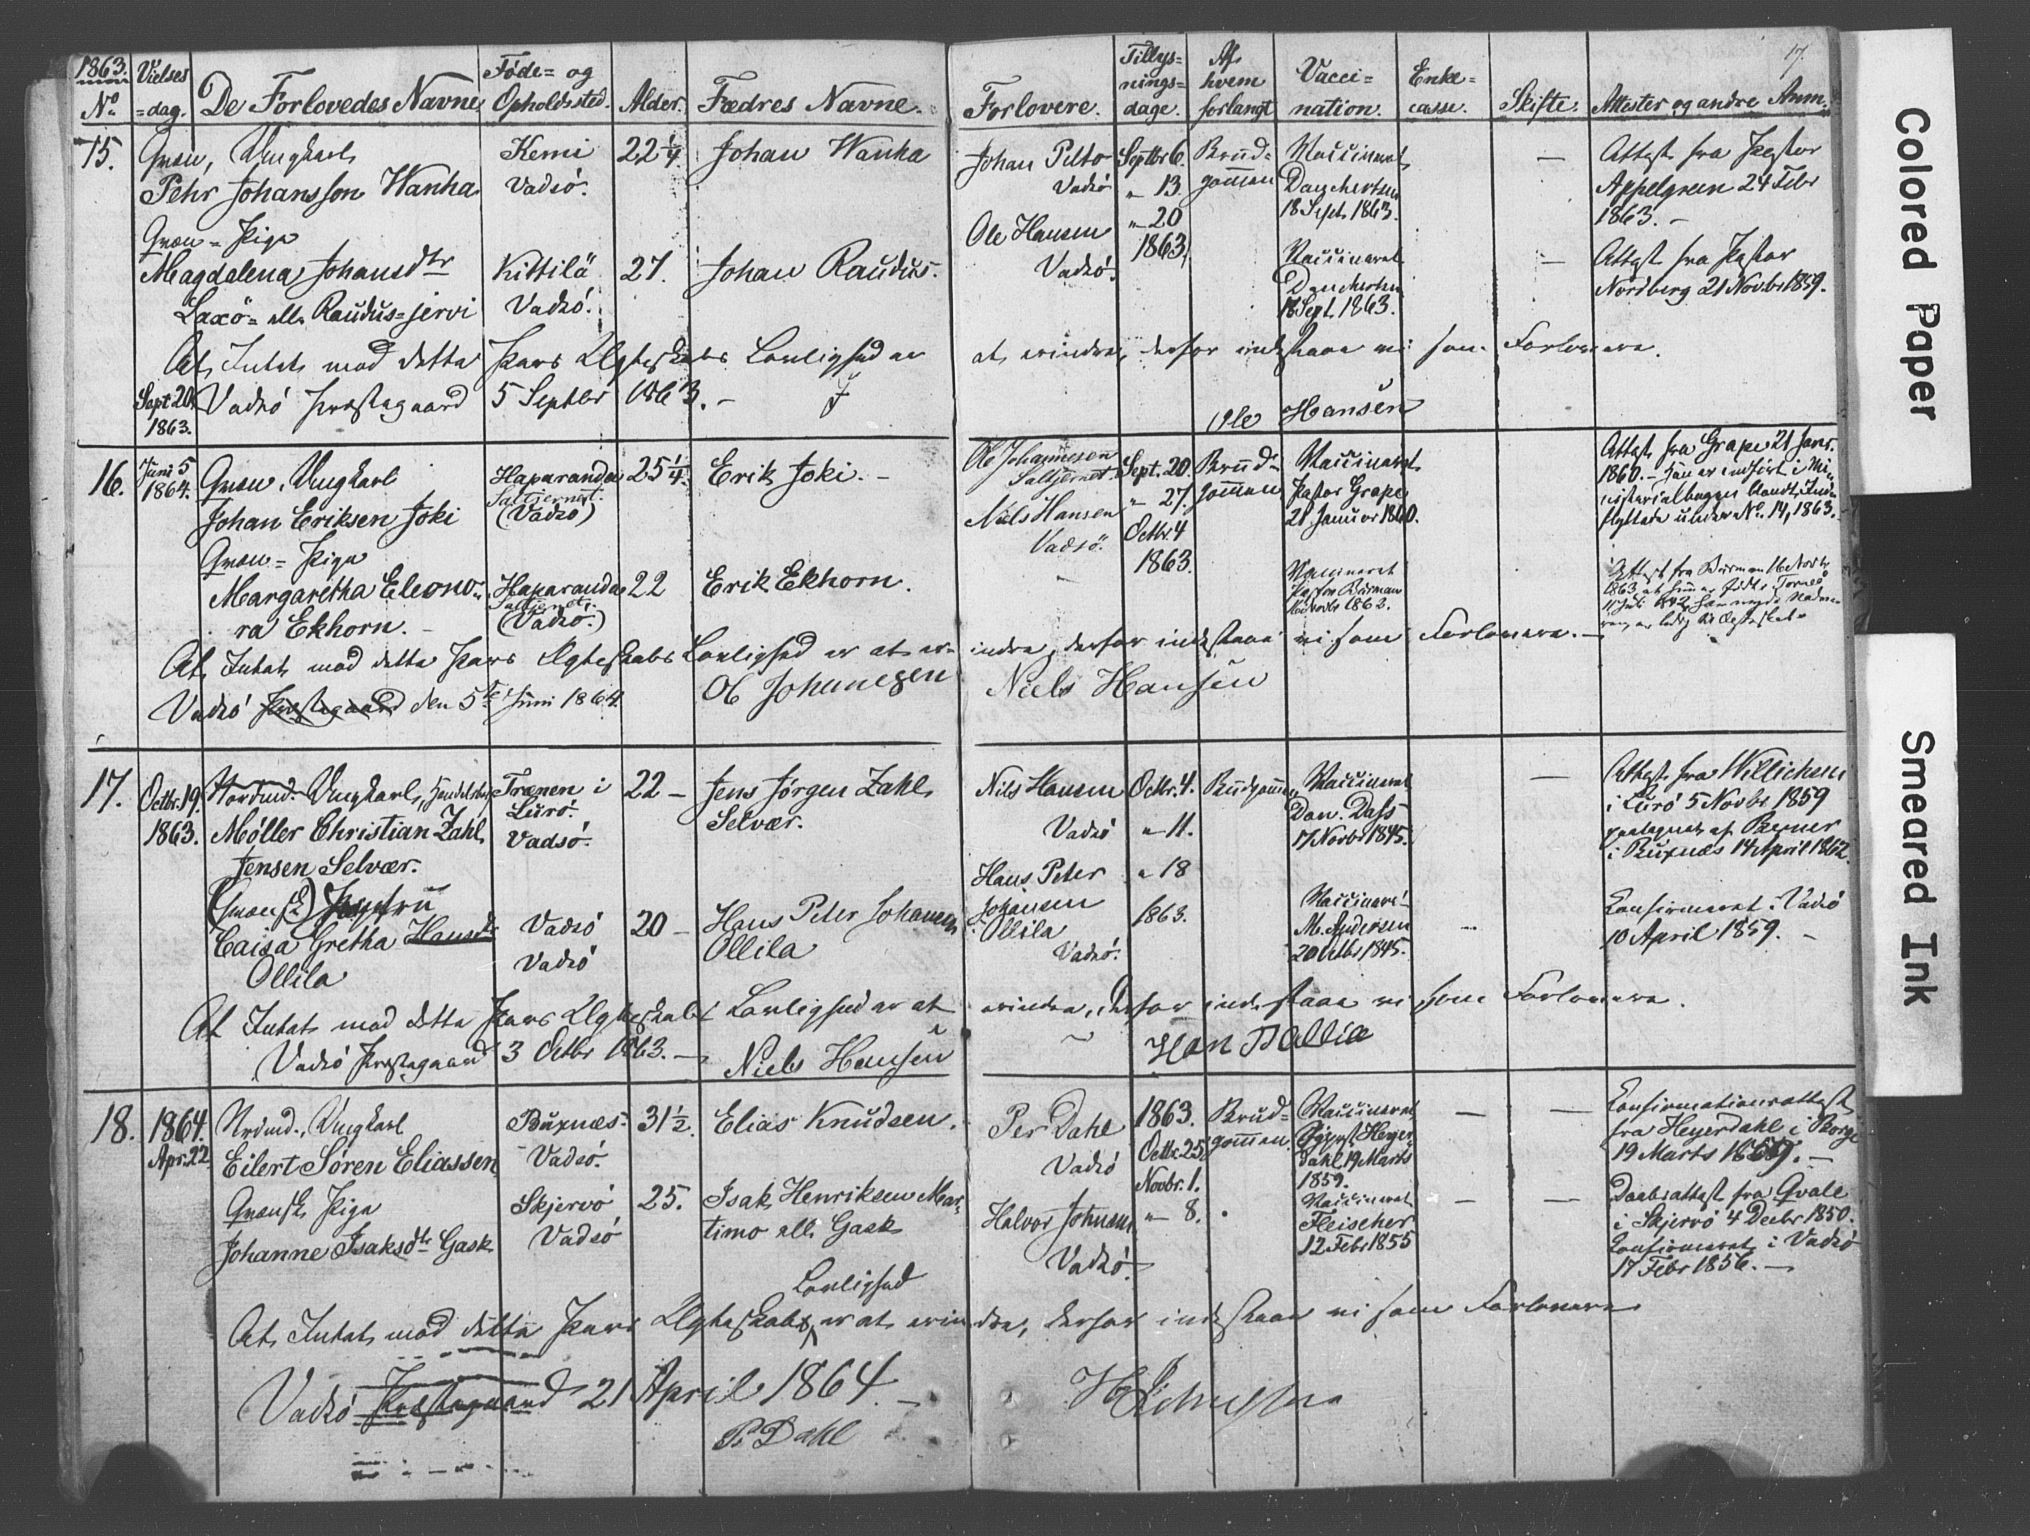 1863.
No.
Vielses
=dag.
De Forlovedes Navne
Føde= og
Opholdssted.
Alder.
Fædres Navne.
Forlovere.
Tillys=
nings=
dage.
Af
hvem
forlangt
Vacci=
nation.
Enke=
casse.
Skifte.
Attester og andre Anm.
17.
15.
Sept. 20.
1863.
Qvæn, Ungkarl
Pehr Johansson Wanha
Qvæn = Pige
Magdalena Johansdtr
Laxö= ell. Raudus=jervi
Kemi
Vadsö.
Kittilä
Vadsö.
22 1/4
27.
Johan Wanha
Johan Raudus.
Johan Pelto
Vadsö
Ole Hansen
Vadsö.
Septbr 6.
" 13.
" 20
1863.
Brud=
gommen
Vaccineret
18 Sept. 1863.
Vaccineret
18 Sept. 1863.
—
—
Attest fra Pastor
Appelgreen 24 Febr
1863. —
Attest fra Pastor
Nordberg 21 Novbr 1859.
At Intet mod dette Pars Ægteskabs Lovlighed er at erindre, derfor indestaae vi som Forlovere.
Vadsö Præstegaard 5 Septbr 1863. —
Ole Hansen
16.
Juni 5
1864.
Qvæn, Ungkarl
Johan Eriksen Joki
Qvæn = Pige
Margaretha Eleono=
ra Ekhorn. —
Haparanda
Saltjernet.
(Vadsö)
Haparanda
Saltjernet.
(Vadsö.)
25 1/4.
22
Erik Joki. —
Erik Ekhorn.
Ole Johannesen
Saltjernet.
Niels Hansen
Vadsö.
Sept. 20.
" 27.
Octbr. 4
1863.
Brud=
gommen
Vaccineret
Pastor Grape
21 Januar 1860.
Vaccineret
Pastor Burman
1862.
Attest fra Grape 21 Janr.
1860. — Han er indført i Mi=
nisterialbogen blandt Ind=
flyttede under No. 14, 1863.
At Intet mod dette Pars Ægteskabs Lovlighed er at er= indre, derfor indestaae vi som Forlovere. —
Vadsö Præstegaard den 5te Juni 1864.
Ol Johanesen
Niels Hansen
17.
Octbr. 19.
1863.
Nordmd. Ungkarl, Handelsbtj.
Møller Christian Zahl
Jensen Selvær.
(Qvænsk) Jomfru
Caisa Gretha Hansdtr
Ollila
Trænen i
Lurö.
Vadsö.
Vadsö
Vadsö
22 —
20 —
Jens Jørgen Zahl
Selvær.
Hans Peter Johansen
Ollila
Nils Hansen
Vadsö
Hans Peter
Johansen
Ollila
Vadsö.
Octbr. 4.
" 11.
" 18
1863.
Brudgommen
Vaccineret
Dan. Dass
17 Novbr 1845.
Vaccineret
M. Andersen
20 Octbr 1845.
—
Attest fra Willichsen
i Lurö 5 Novbr 1859
paategnet af
i Buxnæs 14 April 1862.
Confirmeret i Vadsö
10 April 1859. —
At Intet mod dette Pars Ægteskabs Lovlighed er at erindre, derfor indestaae vi som Forlovere.
Vadsö Præstegaard 3 Octbr 1863. —
Niels Hansen
18.
1864.
Apr. 22
Nrdmd., Ungkarl
Eilert Søren Eliassen
Qvænsk Pige
Johanne Isaksdtr Gask
Buxnæs
Vadsö.
Skjervö
Vadsö
31 1/2.
25.
Elias Knudsen.
Isak Henriksen Mar=
timo ell. Gask
Per Dahl
Vadsö
Halvor Johnsen
Vadsö.
1863.
Octbr. 25.
Novbr. 1.
" 8.
Brud=
gommen
Vaccineret
August Heyer=
dahl 19 Marts
1859.
Vaccineret
Fleischer
12 Febr 1855
—
—
—
—
Confirmationsattest
fra Heyerdahl i Borge
19 Marts 1859. —
Daabsattest fra Qvale
i Skjervö 4 Decbr 1850.
Confirmeret i Vadsö
17 Febr 1856. —
Lovlighed
At Intet mod dette Pars Ægteskabs er at erindre, derfor indestaae vi som Forlovere
Vadsö Præstegaard 21 April 1864. —
P. Dahl
Colored Paper
Smeared Ink